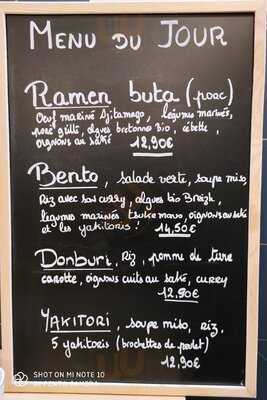 MENU DU JOUR
Ramen buta (porc)
Oeuf mariné Ajitamago, légumes marinés,
porc grillé, algues bretonnes bio, cébette,
oignons au saké 12,90€
Bento, salade verte, soupe miso,
Riz avec son curry, algues bio Breizh,
légumes marinés tsukemono, oignons au saké
et les yakitoris! 14,50€
Donburi, Riz, pomme de terre
carotte, oignons cuits au saké, curry
12,90€
YAKITORI, soupe miso, riz,
5 yakitoris (brochettes de poulet)
12,90€
SHOT ON MI NOTE 10